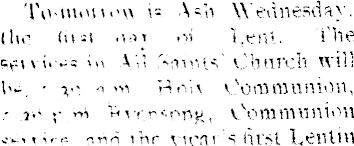 Tomorrow is Ash Wednesday,
the first day of Lent. The
services in All Saints' Church will
be, a.m. Holy Communion,
p.m. Evensong, Communion
service, and the vicar's first Lentin